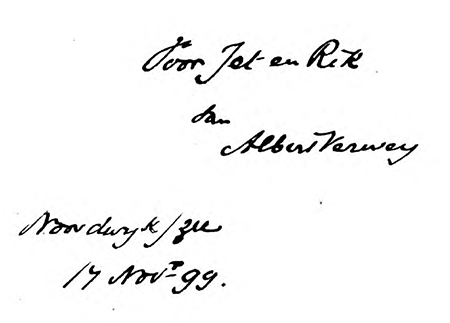 Voor Jet en Rik
van
Albert Verwey
Noordwyk/zee
17 Nov. 99.